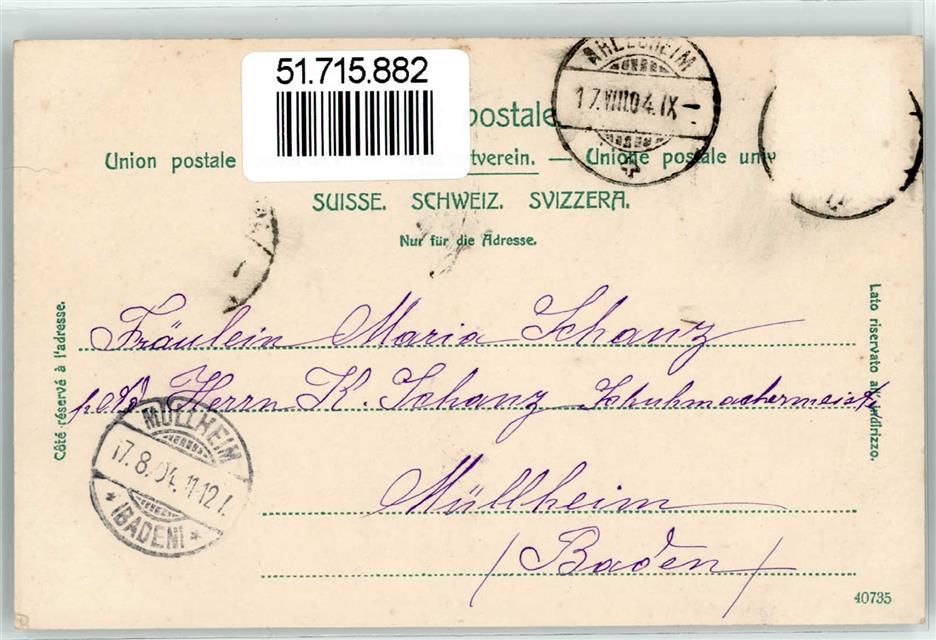 51.715.882
postale
Union postale tverein. — Unione postale un
SUISSE. SCHWEIZ. SVIZZERA.
Nur für die Adresse.
ARLESHEIM
17.VIII.04.IX
Côté réservé à l'adresse.
Lato riservato all'indirizzo.
Fräulein Maria Schanz
Herrn K. Schanz Schuhmachermeister
Müllheim
(Baden)
MÜLLHEIM
17.8.04.11-12
(BADEN)
40735